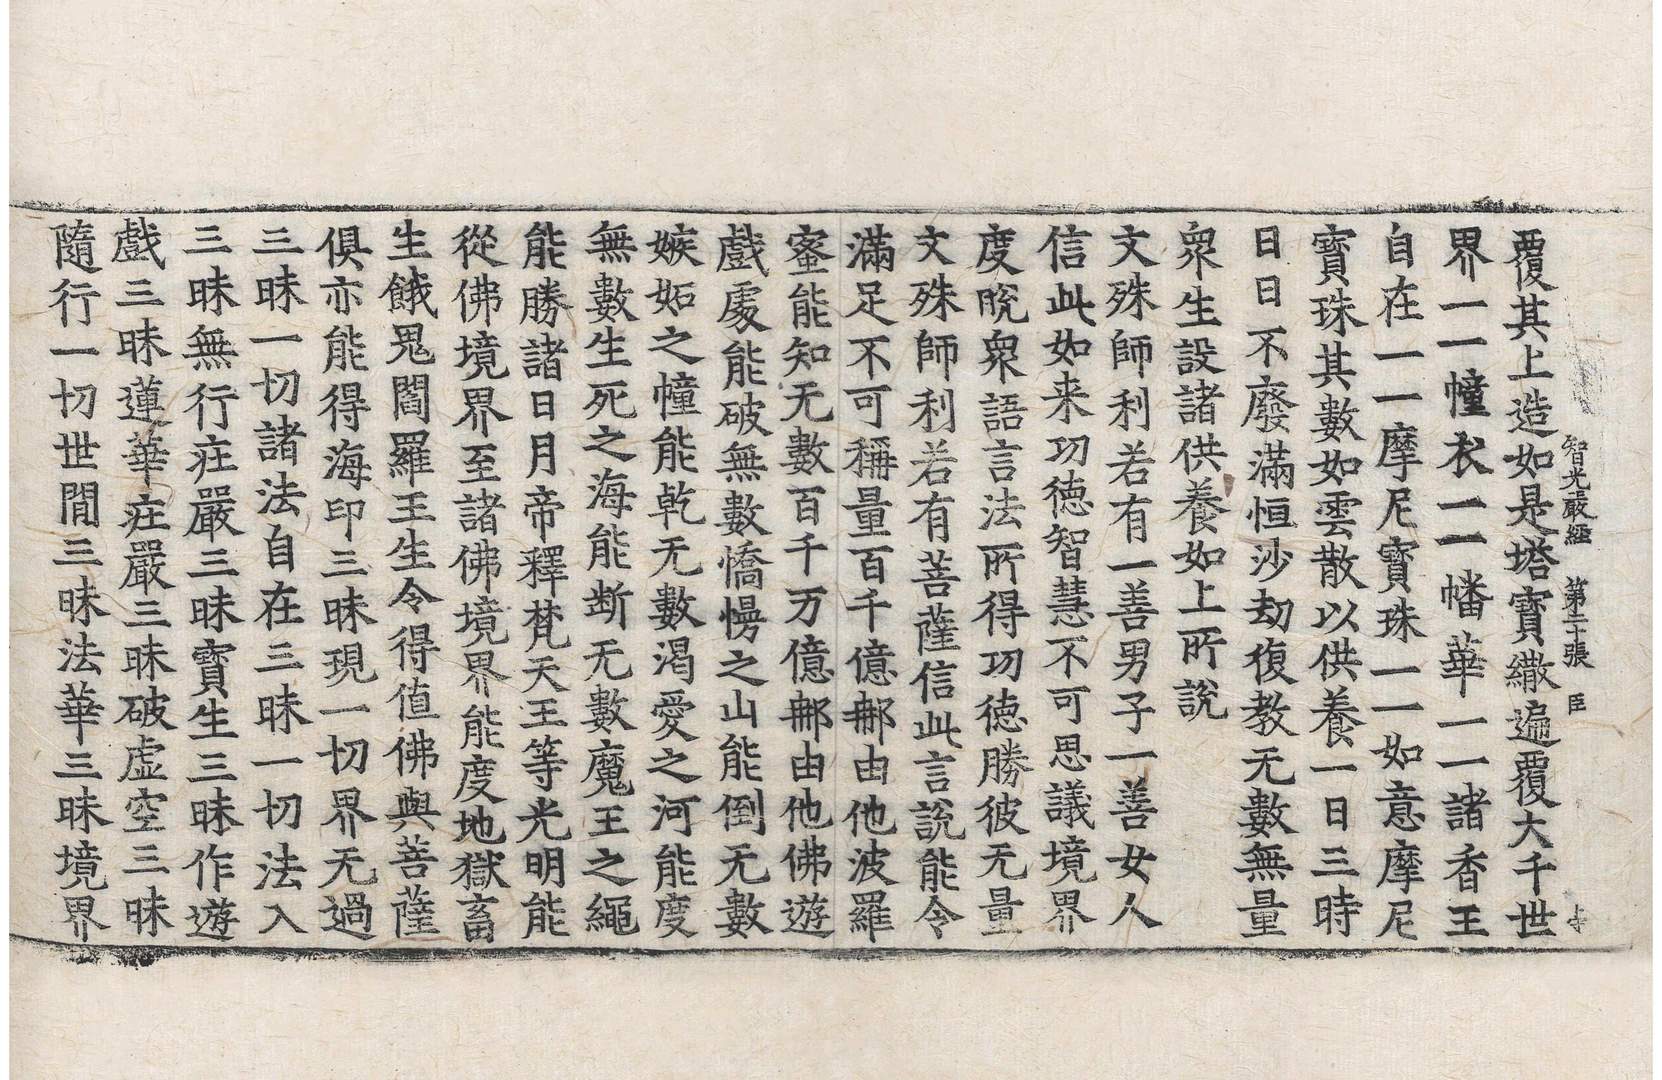 智光嚴經 第二十張 臣
覆其上造如是塔寶繖遍覆大千世
界一一幢衣一一幡華一一諸香王
自在一一摩尼寶珠一一如意摩尼
寶珠其數如雲散以供養一日三時
日日不廢滿恒沙劫復教无數無量
衆生設諸供養如上所說
文殊師利若有一善男子一善女人
信此如来功德智慧不可思議境界
度脫衆語言法所得功德勝彼无量
文殊師利若有菩薩信此言說能令
滿足不可稱量百千億郍由他波羅
蜜能知无數百千万億郍由他佛遊
戲處能破無數憍慢之山能倒无數
嫉妬之幢能乾无數渴愛之河能度
無數生死之海能断无數魔王之繩
能勝諸日月帝釋梵天王等光明能
從佛境界至諸佛境界能度地獄畜
生餓鬼閻羅王生令得值佛與菩薩
俱亦能得海印三昧現一切界无過
三昧一切諸法自在三昧一切法入
三昧無行莊嚴三昧寶生三昧作遊
戲三昧蓮華莊嚴三昧破虛空三昧
隨行一切世閒三昧法華三昧境界